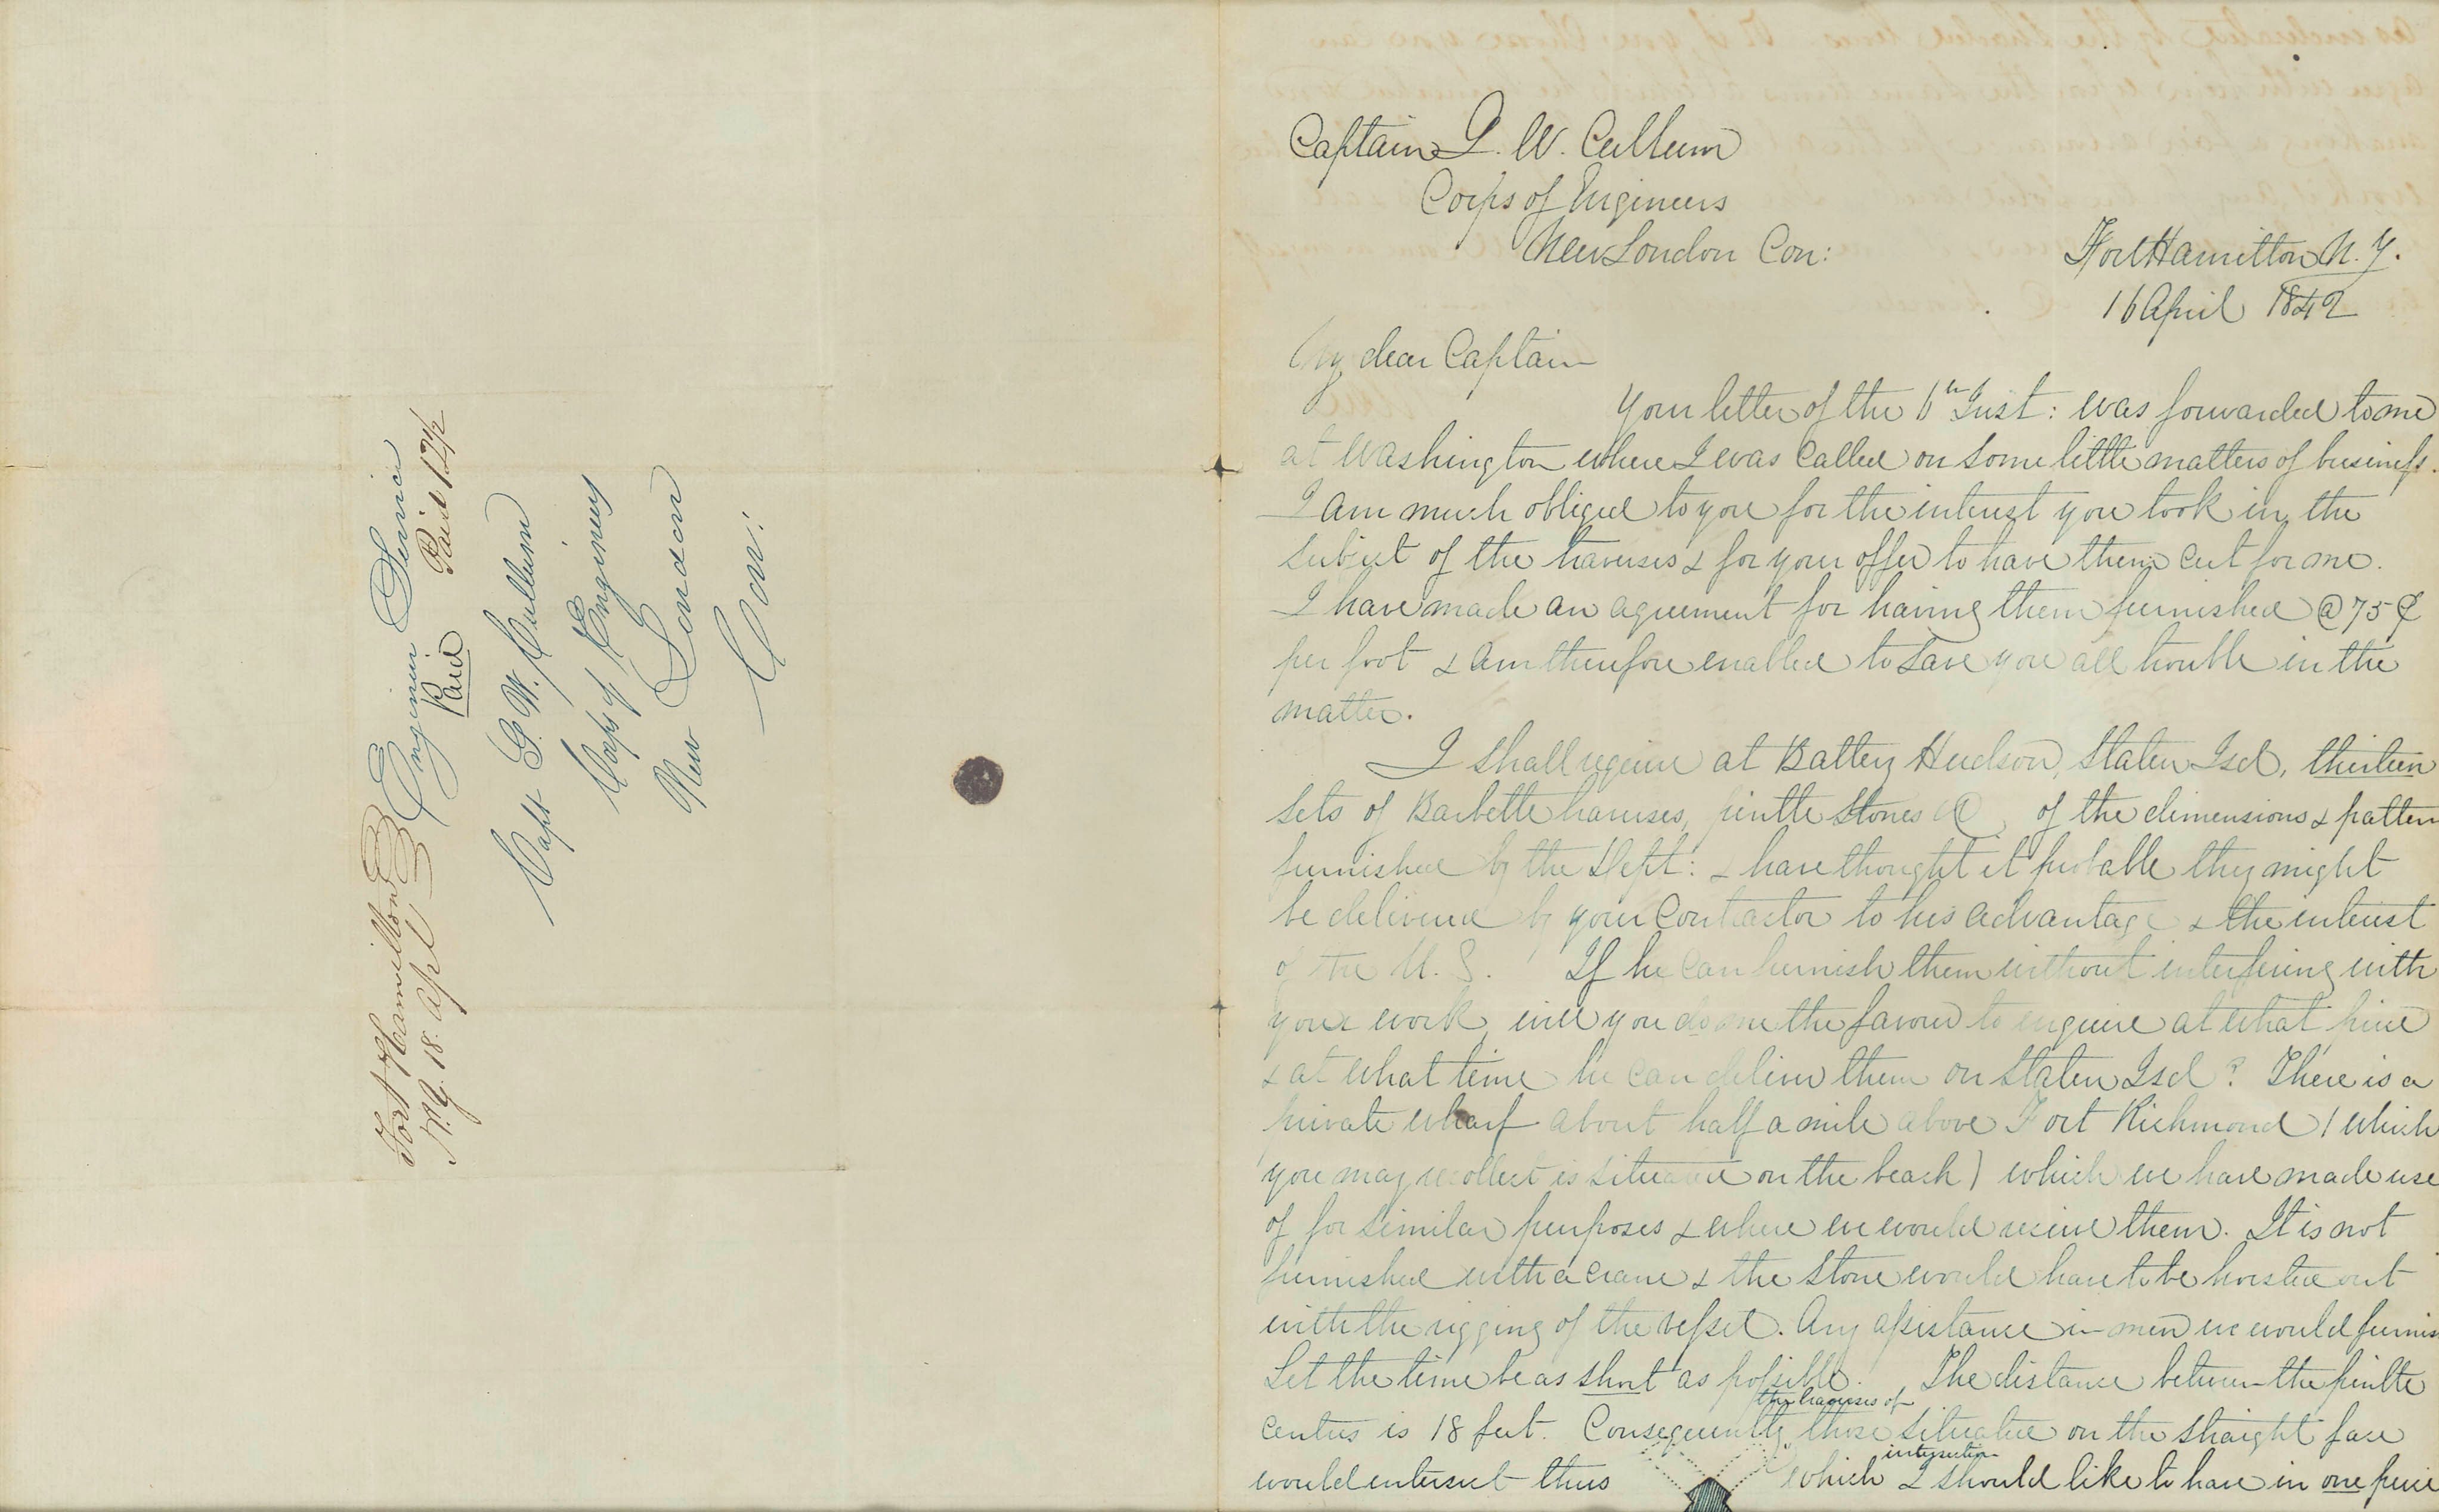 Fort Hamilton
N.Y. 18. Apl
Engineer Service
Paid Paid 12½
Capt G. W. Cullum
Corps of Engineers
New London
Con:
Captain G. W. Cullum
Corps of Engineers
New London Con:
Fort Hamilton N. Y.
16 April 1842
My dear Captain
Your letter of the 6th Inst: was forwarded to me
at Washington where I was called on some little matters of business.
I am much obliged to you for the interest you took in the
subject of the traverses & for your offer to have them cut for me.
I have made an agreement for having them furnished @ 75 ¢
per foot & am therefore enabled to save you all trouble in the
matter.
I shall require at Battery Hudson, Staten Isd, thirteen
sets of Barbette traverses, pintle stones &c, of the dimensions & pattern
furnished by the Dept: & have thought it probable they might
be delivered by your Contractor to his advantage & the interest
of the U. S. If he can furnish them without interfering with
your work, will you do me the favour to enquire at what price
& at what time he can deliver them on Staten Isd? There is a
private wharf about half a mile above Fort Richmond (which
you may recollect is situated on the beach) which we have made use
of for similar purposes & where we would receive them. It is not
furnished with a crane & the stone would have to be hoisted out
with the rigging of the vessel. Any assistance in men we would furnis
Let the time be as short as possible. The distance between the pintle
the traverses of
centres is 18 feet. Consequently those situated on the straight face
intersection
would intersect thus which I should like to have in one piece